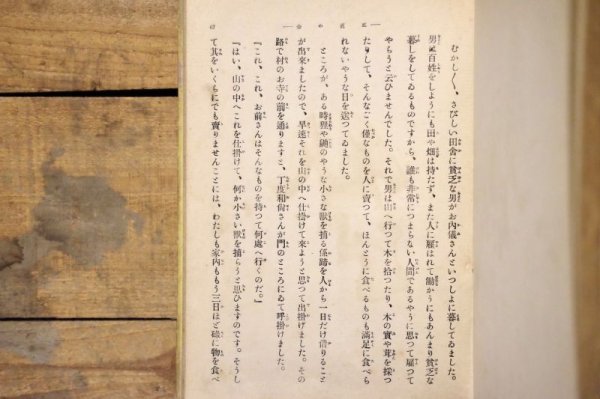 むかし〳〵、さびしい田舎に貧乏な男がお内儀さんといつしよに暮してゐました。
男は百姓をしようにも田や畑は持たず、また人に雇はれて働かうにもあんまり貧乏な
暮しをしてゐるものですから、誰も非常につまらない人間であるやうに思つて雇つて
やらうと云ひませんでした。それで男は山へ行つて木を拾つたり、木の實や茸を採つ
たりして、そんなごく僅なものを人に賣つて、ほんとうに食べるものも滿足に食べら
れないやうな日を送つてゐました。
ところが、ある時狸や鼬のやうな小さな獸を捕る係蹄を人から一日だけ借りること
が出來ましたので、早速それを山の中へ仕掛けて來ようと思つて出掛けました。その
路で村のお寺の前を通りますと、丁度和尚さんが門のところにゐて呼掛けました。
『これ、これ、お前さんはそんなものを持つて何處へ行くのだ。』
『はい、山の中へこれを仕掛けて、何か小さい獸を捕らうと思ひますのです。そうし
て其をいくらにでも賣りませんことには、わたしも家内ももう三日ほど碌に物を食べ